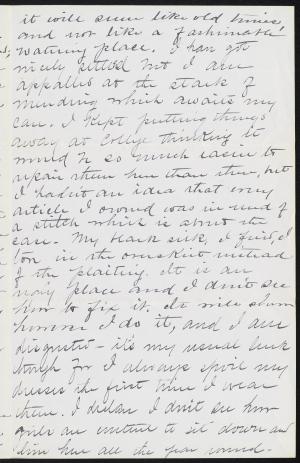 it will seem like old times
and not like a fashionable
watering place. I have got
nicely settled but I am
appalled at the stack of
mending which awaits my
care. I kept putting things
away at College thinking it
would be so much easier to
repair them here than there, but
I hadn't an idea that every
article I owned was in need of
a stitch which is about the
case. My black silk, I find, is
torn in the overskirt, instead
of the plaiting. It is an
ugly place and I don't see
how to fix it. It will show
however I do it, and I am
disgusted - it's my usual luck
though for I always spoil my
dresses the first time I wear
them. I declare I don't see how
girls are content to sit down and
live here all the year round.